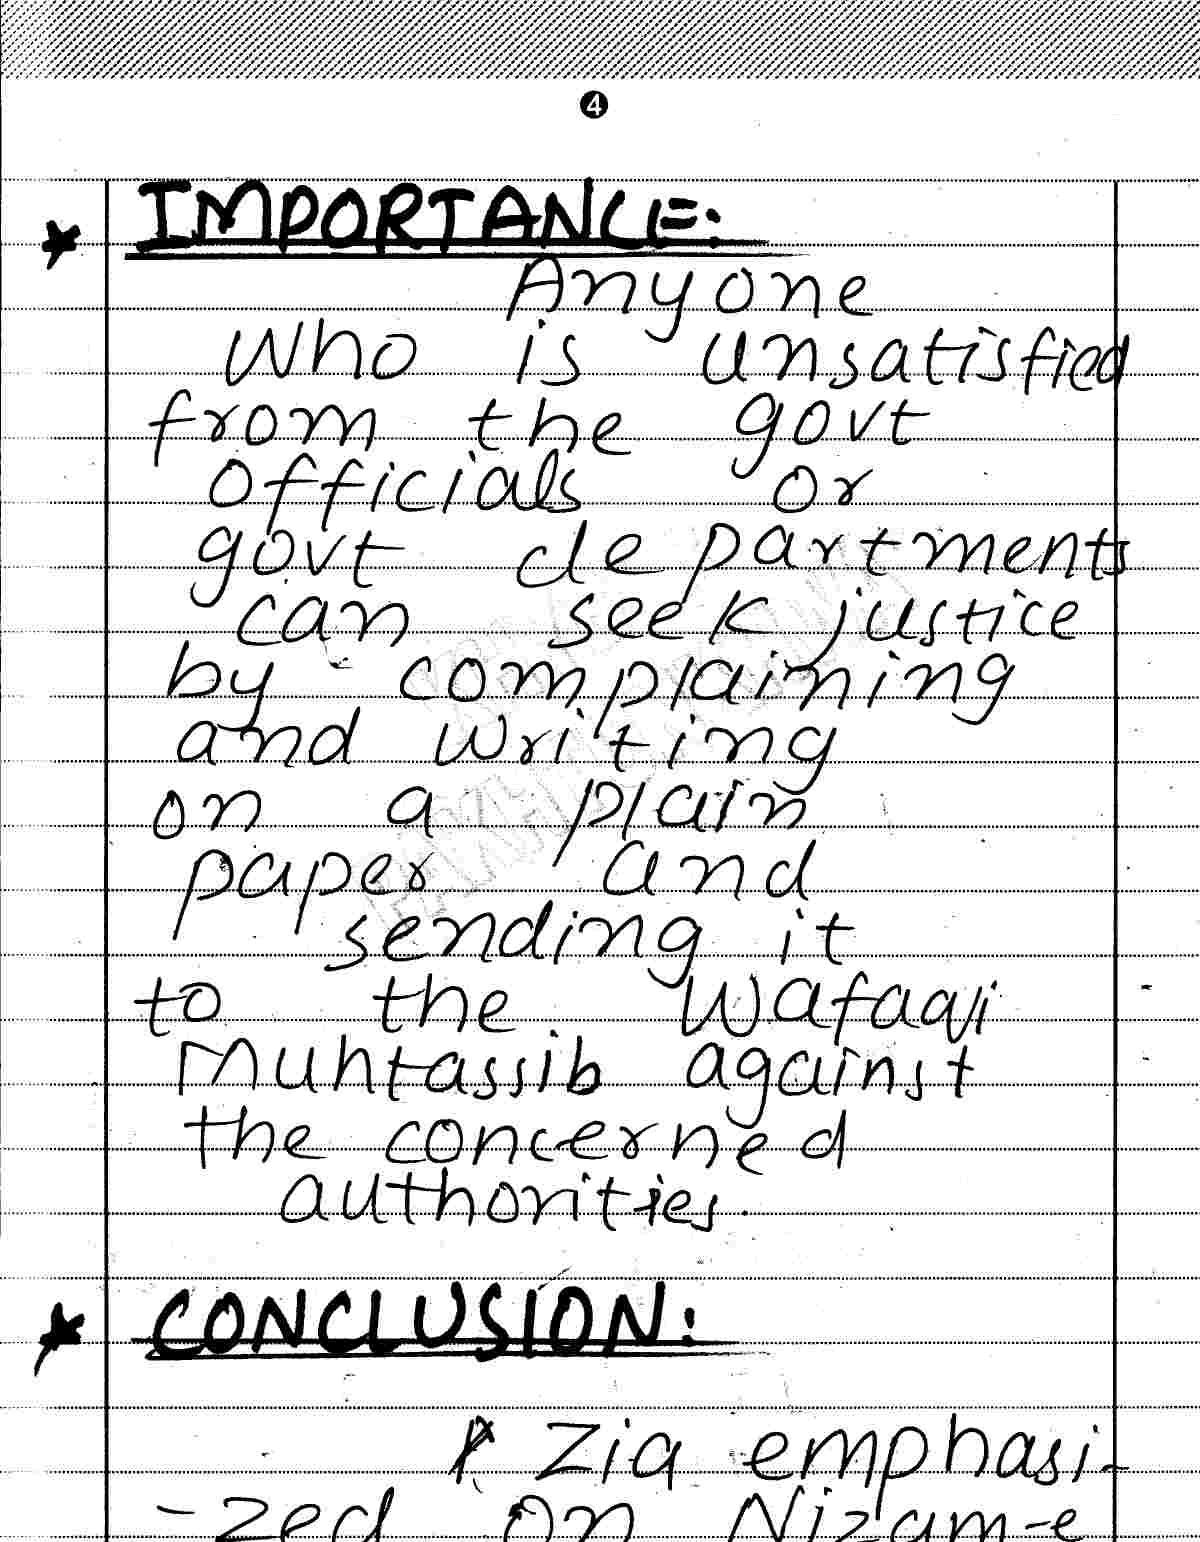 4
IMPORTANCE:
Anyone
Who is unsatisfied
from the govt
officials or
govt departments
can seek justice
by complaining
and writing
on a plain
paper and
sending it
to the Wafaqi
Muhtassib against
the concerned
authorities.
CONCLUSION:
Zia emphasi-
-zed on Nizam-e